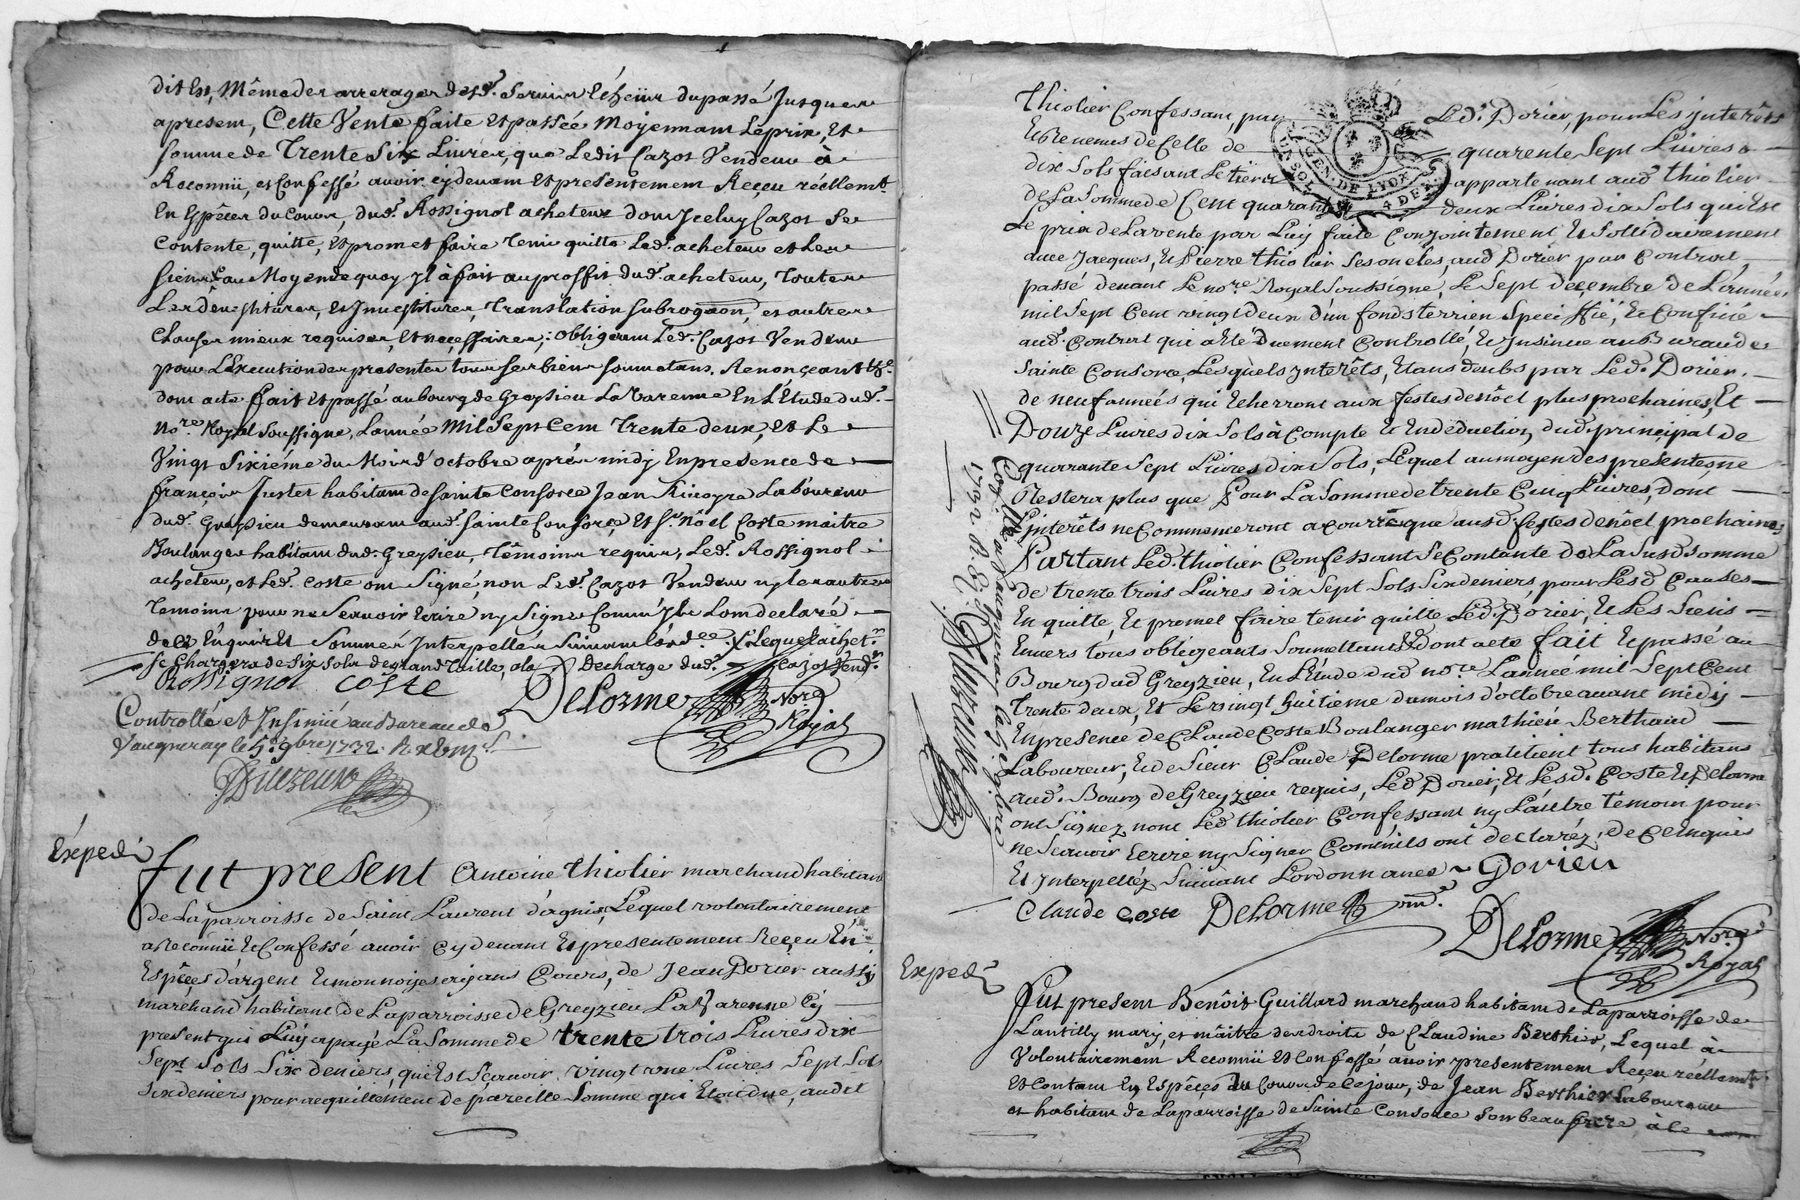 dit est, Mêmes des arrerages desd. Servis Echeüs du passé Jusques
apresent, Cette Vente faite et passée Moyennant Leprix, Et
somme de Trente Six Livres, que Ledit Cazot Vendeur à
Reconnü, et Confessé avoir cy devant et presentement Reçeu réellemt.
En Espêces du Cours, dud. Rossignol acheteur dont Jceluy Cazot Se
Contente, quitte, et promet faire tenir quitte Led. acheteur et Les
siens, au Moyen de quoy Jl à fait au proffit dud. acheteur, Toutes
Les dévestitures, et Jnvestitures, Translation subrogaon, et autres
Clauses mieux requises, et nécessaires, obligeant Led. Cazot Vendeur
pour L'Execution des presentes tous ses biens soumetans, Renonçeant &c.
dont acte fait et passé au bourg de Greysieu La Varenne En L'Etude dud.
Nore. Royal soussigné, L'année Mil Sept Cent Trente deux, et Le
Vingt Sixiéme du Mois d'octobre aprés midy En presence de
françois Juster habitant de Sainte Consorce Jean Laboureur
dud. Greysieu demeurant aud. Sainte Consorce, et Sr. Nôel Coste maitre
Boulanger habitant dud. Greysieu, Têmoins requis, Led. Rossignol
acheteur, et Led. Coste ont Signé, non Led. Cazot Vendeur ny les autres
Temoins pour ne Scavoir Ecrire ny Signer Comme Jls L'ont declaré
de ce Enquis Et Sommés Interpellés Suivant L'ordce. Lequel achetr.
se Chargera de Six Sols de grand Taille, à la Decharge dud. Cazot Vendr.
Rossignol Coste Delorme Nore. Royal
Controllé et Insinué au Bureau de
Vaugneray le 5e. 9bre 1732. R
Duvreux
Expedié
fut present Antoine Thiolier marchand habitant
de La parroisse de Saint Laurent d'agnis, Lequel volontairement
a Reconnü Et Confessé avoir Cy devant Et presentement Reçeu En
Espêces d'argent Et monnoyes ayans Cours, de Jean Dorier aussy
marchand habitant de La parroisse de Greyzieu La Varenne Cy
present qui Luy a payé La Somme de trente trois Livres dix
Sept Sols Six deniers, qui Est Scavoir, vingt une Livres Sept Sols
Six deniers pour acquittement de pareille Somme qui Etoit düe, audit
Thiolier Confessant, par Led. Dorier, pour Les jnterêts
Et Revenus de Celle de quarente Sept Livres
dix Sols faisant Le tiers appartenant aud. Thiolier
de La Somme de Cent quarante deux Livres dix Sols qui Est
Le prix de La vente par Luy faite Conjointement Et Sollidairement
avec Jacques, Et Pierre Thiolier Ses oncles, aud. Dorier par Contract
passé devant Le nore. Royal Soussigné, Le Sept decembre de L'année
mil Sept Cent vingt deux d'un fonds terrien Speciffié, Et Confiné
aud. Contract qui a Eté Duement Controllé, Et Jnsinué au Bureau de
Sainte Consorce, Lesquels jnterêts, Etans deubs par Led. Dorier.
de neuf années qui Echerront aux festes de nôel plus prochaines, Et
Douze Livres dix Sols à Compte Et En deduction dud. principal de
quarante Sept Livres dix Sols, Lequel au moyen des presentes, ne
Restera plus que pour La Somme de trente Cinq Livres, dont
L'interêts ne Commenceront a Courir que ausd. festes de nôel prochaines
Partant Led. Thiolier Confessant Se Contante de La Susd. Somme
de trente trois Livres dix Sept Sols Six deniers, pour Lesd. Causes
En quitte, Et promet faire tenir quitte Led. Dorier, Et Les Siens
Envers tous obligeants Soumettants &c. dont acte fait Et passé au
Bourg dud. Greyzieu, En L'Etude dud. nore. L'année mil Sept Cent
Trente deux, Et Le vingt huitieme du mois d'octobre avant midy
En presence de Claude Coste Boulanger mathieu Berthaud
Laboureur, Et de Sieur Claude Delorme praticient tous habitans
aud. Bourg de Greyzieu requis, Led. Dorier, Et Lesd. Coste Et Delorme
ont Signez non Led. Thiolier Confessant ny L'autre Temoin pour
ne Scavoir Ecrire ny Signer Comm'ils ont declaréz, de Ce Enquis
Et Jnterpelléz Suivant L'ordonnance Dorieu
Claude Coste Delorme
Delorme Nore. Royal
GEN. DE LYON
Cont. à Vaugneray le 5e. 9bre
1732 R
Duvreux
Expedié
fut present Benôit Guillard marchand habitant de La parroisse de
Lantilly mary, et maître des droits de Claudine Berthier, Lequel à
Volontairement Reconnü et Confessé avoir presentement Reçeu réellemt.
et Contant En Espêces du Cours de Ce jour, de Jean Berthier Laboureur
et habitant de La parroisse de Sainte Consorce Son beau frere à Ce